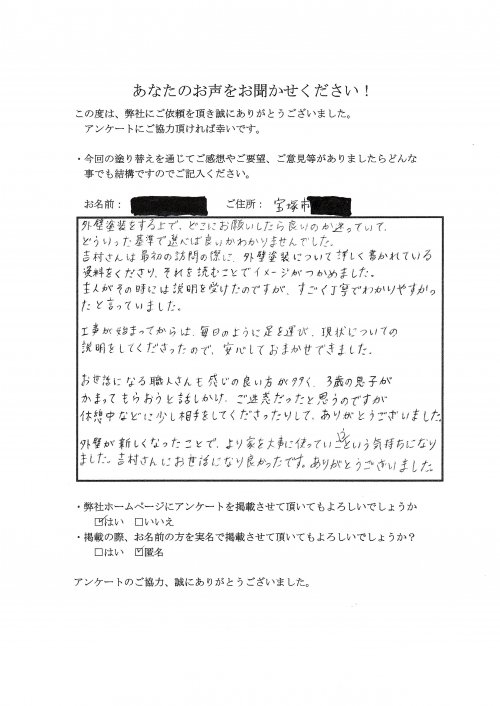 あなたのお声をお聞かせください！
この度は、弊社にご依頼を頂き誠にありがとうございました。
アンケートにご協力頂ければ幸いです。
・今回の塗り替えを通じてご感想やご要望、ご意見等がありましたらどんな
事でも結構ですのでご記入ください。
お名前： ご住所： 宝塚市
外壁塗装をする上で、どこにお願いしたら良いのか迷っていて、
どういった基準で選べば良いかわかりませんでした。
吉村さんは最初の訪問の際に、外壁塗装について詳しく書かれている
資料をくださり、それを読むことでイメージがつかめました。
主人がその時には説明を受けたのですが、すごく丁寧でわかりやすかっ
たと言っていました。
工事が始まってからは、毎日のように足を運び、現状についての
説明をしてくださったので、安心しておまかせできました。
お世話になる職人さんも感じの良い方が多く、3歳の息子が
かまってもらおうと話しかけ、ご迷惑だったと思うのですが
休憩中などに少し相手をしてくださったりして、ありがとうございました。
外壁が新しくなったことで、より家を大事に使っていこうという気持ちになり
ました。吉村さんにお世話になり良かったです。ありがとうございました。
・弊社ホームページにアンケートを掲載させて頂いてもよろしいでしょうか
☑はい □いいえ
・掲載の際、お名前の方を実名で掲載させて頂いてもよろしいでしょうか？
□はい ☑匿名
アンケートのご協力、誠にありがとうございました。